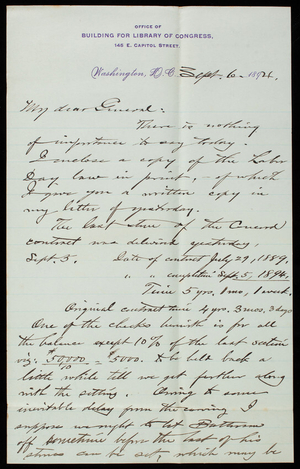 OFFICE OF
BUILDING FOR LIBRARY OF CONGRESS,
146 E. CAPITOL STREET.
Washington, D.C. Sept. 6 - 1894.
My dear General:
There is nothing
of importance to say today.
I enclose a copy of the Labor
Day law in print, - of which
I gave you a written copy in
my letter of yesterday.
The last stone of the
contract was delivered yesterday,
Sept. 5. Date of contract July 29, 1889.
" " completion Sept. 5, 1894.
Time 5 yrs, 1 mo, 1 week.
Original contract time 4 yrs. 3 mos. 3 days
One of the checks herewith is for all
the balance except 10% of the last section
viz: $50000 = $5000. to be held back a
little while till we get further along
with the setting. Owing to some
inevitable delay from the carving I
suppose we ought to let
off sometime before the last of his
stones can be set, which may be